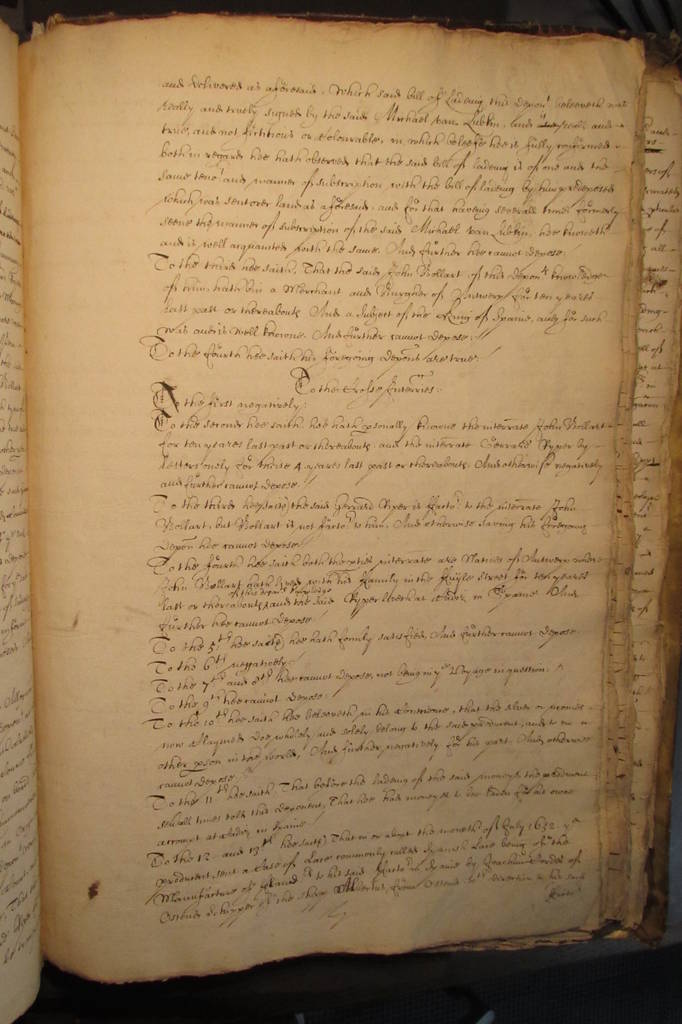 and delivered as aforesaid, Which said bill of ladeing this depon.t beleeveth was
really and truely signed by the said Michael van Lubkin, and and
true, and not fictitious or colourable, in which beleefe hee is fully confirmed
both in regard hee hath observed that the said bill of ladeing is of one and the
same teno.r and manner of subscription, with the bill of ladeing by him predeposed
which was sent over land as aforesaid, and for that haveing severall times formerly
seene the manner of subscription of the said Michael van Lubkin, hee knoweth
and is well acquainted with the same. And further hee cannot depose.
To the third hee saith, That the said John Bollart of this depon.ts knowledge
of him hath bin a Merchant and Burgher of Antwerp for ten yeares
last past or thereabouts And a subject of the King of Spaine, and for such
was and is well knowne. And further cannot depose.
To the fourth hee saith his foregoing depon.s are true.
To the Crosse Interries.
To the first negatively.
To the second hee saith hee hath psonally knowne the interrate John Bollart
for ten yeares last past or thereabouts, and the interrate Gerrard Pyper by
letters onely for these 4 yeares last past or thereabouts. And otherwise negatively
and further cannot depose.
To the third hee saith the said Gerrard Piper is Facto.r to the interrate John
Bollart, but Bollart is not facto.r to him. And otherwise saving his foregoing
depon hee cannot depose.
To the fourth hee saith both the pties interrate are Natives of Antwerp where
John Bollart hath lived with his Family in the street for ten yeares
last or thereabouts of this depon.ts knowledge and the said Pyper liveth at in Spaine And
further cannot depose.
To the 5.th hee saith hee hath formerly satisfied, And further cannot depose
To the 6.th negatively.
To the 7.th and 8.th hee cannot depose, not being in y.e Voyage in question.
To the 9.th hee cannot depose.
To the 10.th hee saith hee beleeveth in his Conscience, that the silver or premises
now claymed doe wholely and solely belong to the said producent, and to no
other pson in the world, And further negatively for his part. And otherwise
cannot depose
To the 11.th hee saith That before the ladeing of the said moneys the producent
severall times told this deponent, That hee had moneys to be laden for his owne
accompt at in Spaine
To the 12.th and 13.th hee saith That in or about the moneth of July 1652 y.e
producent sent a Case of Lace commonly called Spanish Lace being of the
Manufacture of to his said Facto.r in Spaine by of
Ostend Schipper of the shipp from Ostend w.th direction to his said
Facto.r